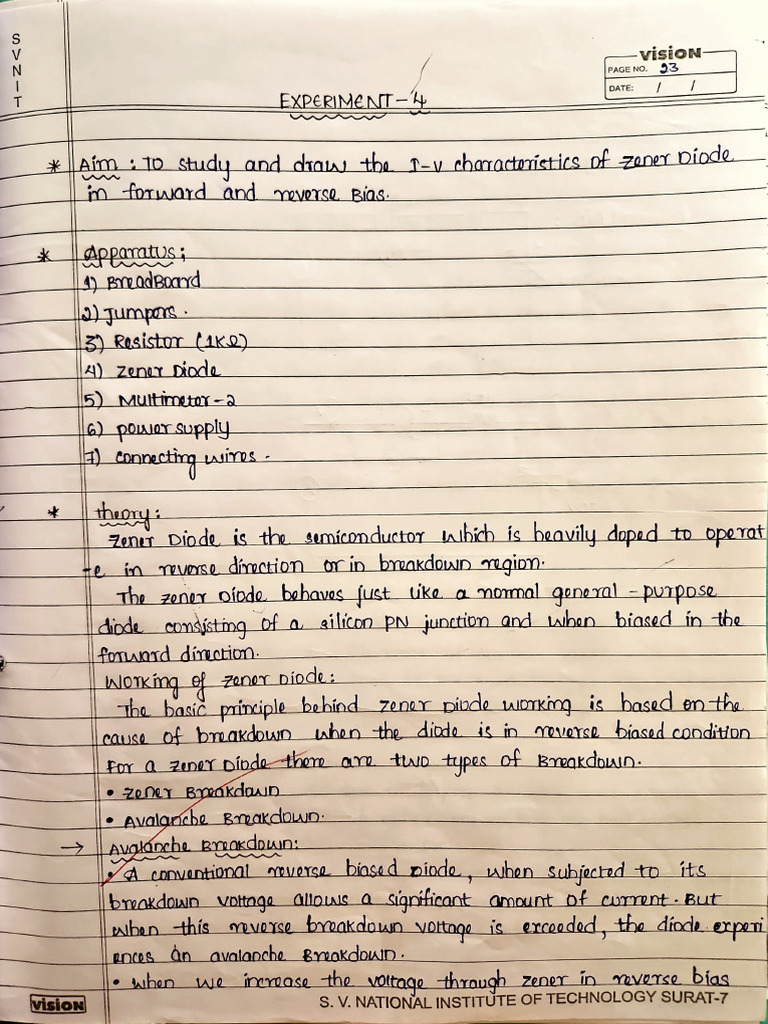 SVNIT
VISION
PAGE NO. 23
DATE: / /
EXPERIMENT-4
* Aim : To study and draw the I-V characteristics of Zener Diode
in forward and reverse Bias.
* Apparatus;
1) BreadBoard
2) Jumpers.
3) Resistor (1KΩ)
4) Zener Diode
5) Multimeter-2
6) power supply
7) connecting wires.
* theory:
Zener Diode is the semiconductor which is heavily doped to operat
-e in reverse direction or in breakdown region.
The zener Diode behaves just like a normal general-purpose
diode consisting of a silicon PN junction and when biased in the
forward direction.
Working of zener Diode:
The basic principle behind zener Diode working is based on the
cause of breakdown when the diode is in reverse biased condition
For a zener Diode there are two types of Breakdown.
• Zener Breakdown
• Avalanche Breakdown.
→ Avalanche Breakdown:
• A conventional reverse biased Diode, when subjected to its
breakdown voltage allows a significant amount of current. But
when this reverse breakdown voltage is exceeded, the diode experi
ences an avalanche Breakdown.
• when we increase the voltage through zener in reverse bias
VISION
S. V. NATIONAL INSTITUTE OF TECHNOLOGY SURAT-7